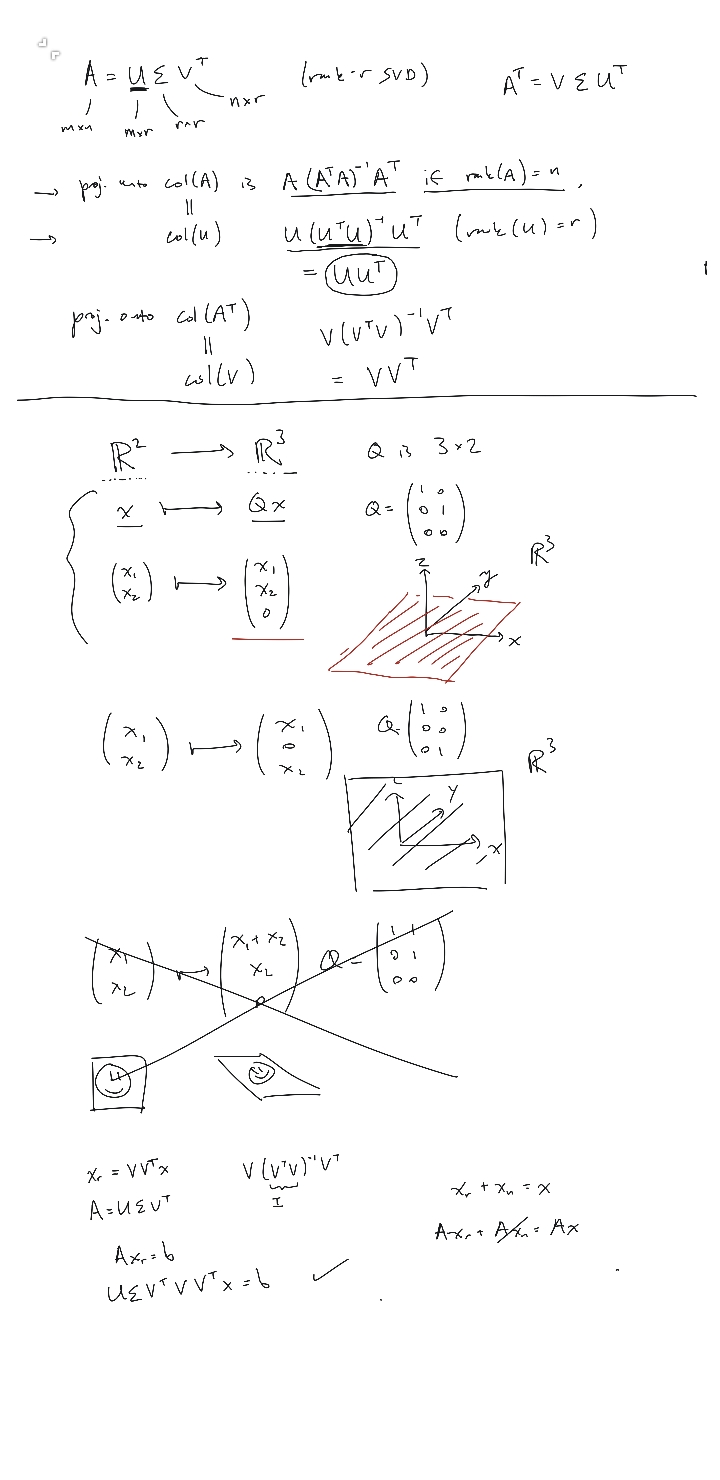 A = U Σ Vᵀ (rank-r SVD) Aᵀ = V Σ Uᵀ
m×n m×r r×r n×r
→ proj. onto col(A) is A(AᵀA)⁻¹Aᵀ if rank(A) = n,
||
→ col(U) U(UᵀU)⁻¹Uᵀ (rank(U) = r)
= UUᵀ
proj. onto col(Aᵀ) V(VᵀV)⁻¹Vᵀ
||
col(V) = VVᵀ
ℝ² → ℝ³ Q is 3×2
x ↦ Qx Q = (1 0
0 1
0 0)
(x₁ x₂) ↦ (x₁ x₂ 0) ℝ³
z y x
(x₁ x₂) ↦ (x₁ 0 x₂) Q (1 0
0 0
0 1)
ℝ³
z y x
(x₁ x₂) ↦ (x₁ + x₂ x₂ 0) Q = (1 1
0 1
0 0)
xᵣ = VVᵀx V(VᵀV)⁻¹Vᵀ
I
xᵣ + xₙ = x
A = UΣVᵀ
Axᵣ + Axₙ = Ax
Axᵣ = b
UΣVᵀVVᵀx = b ✓